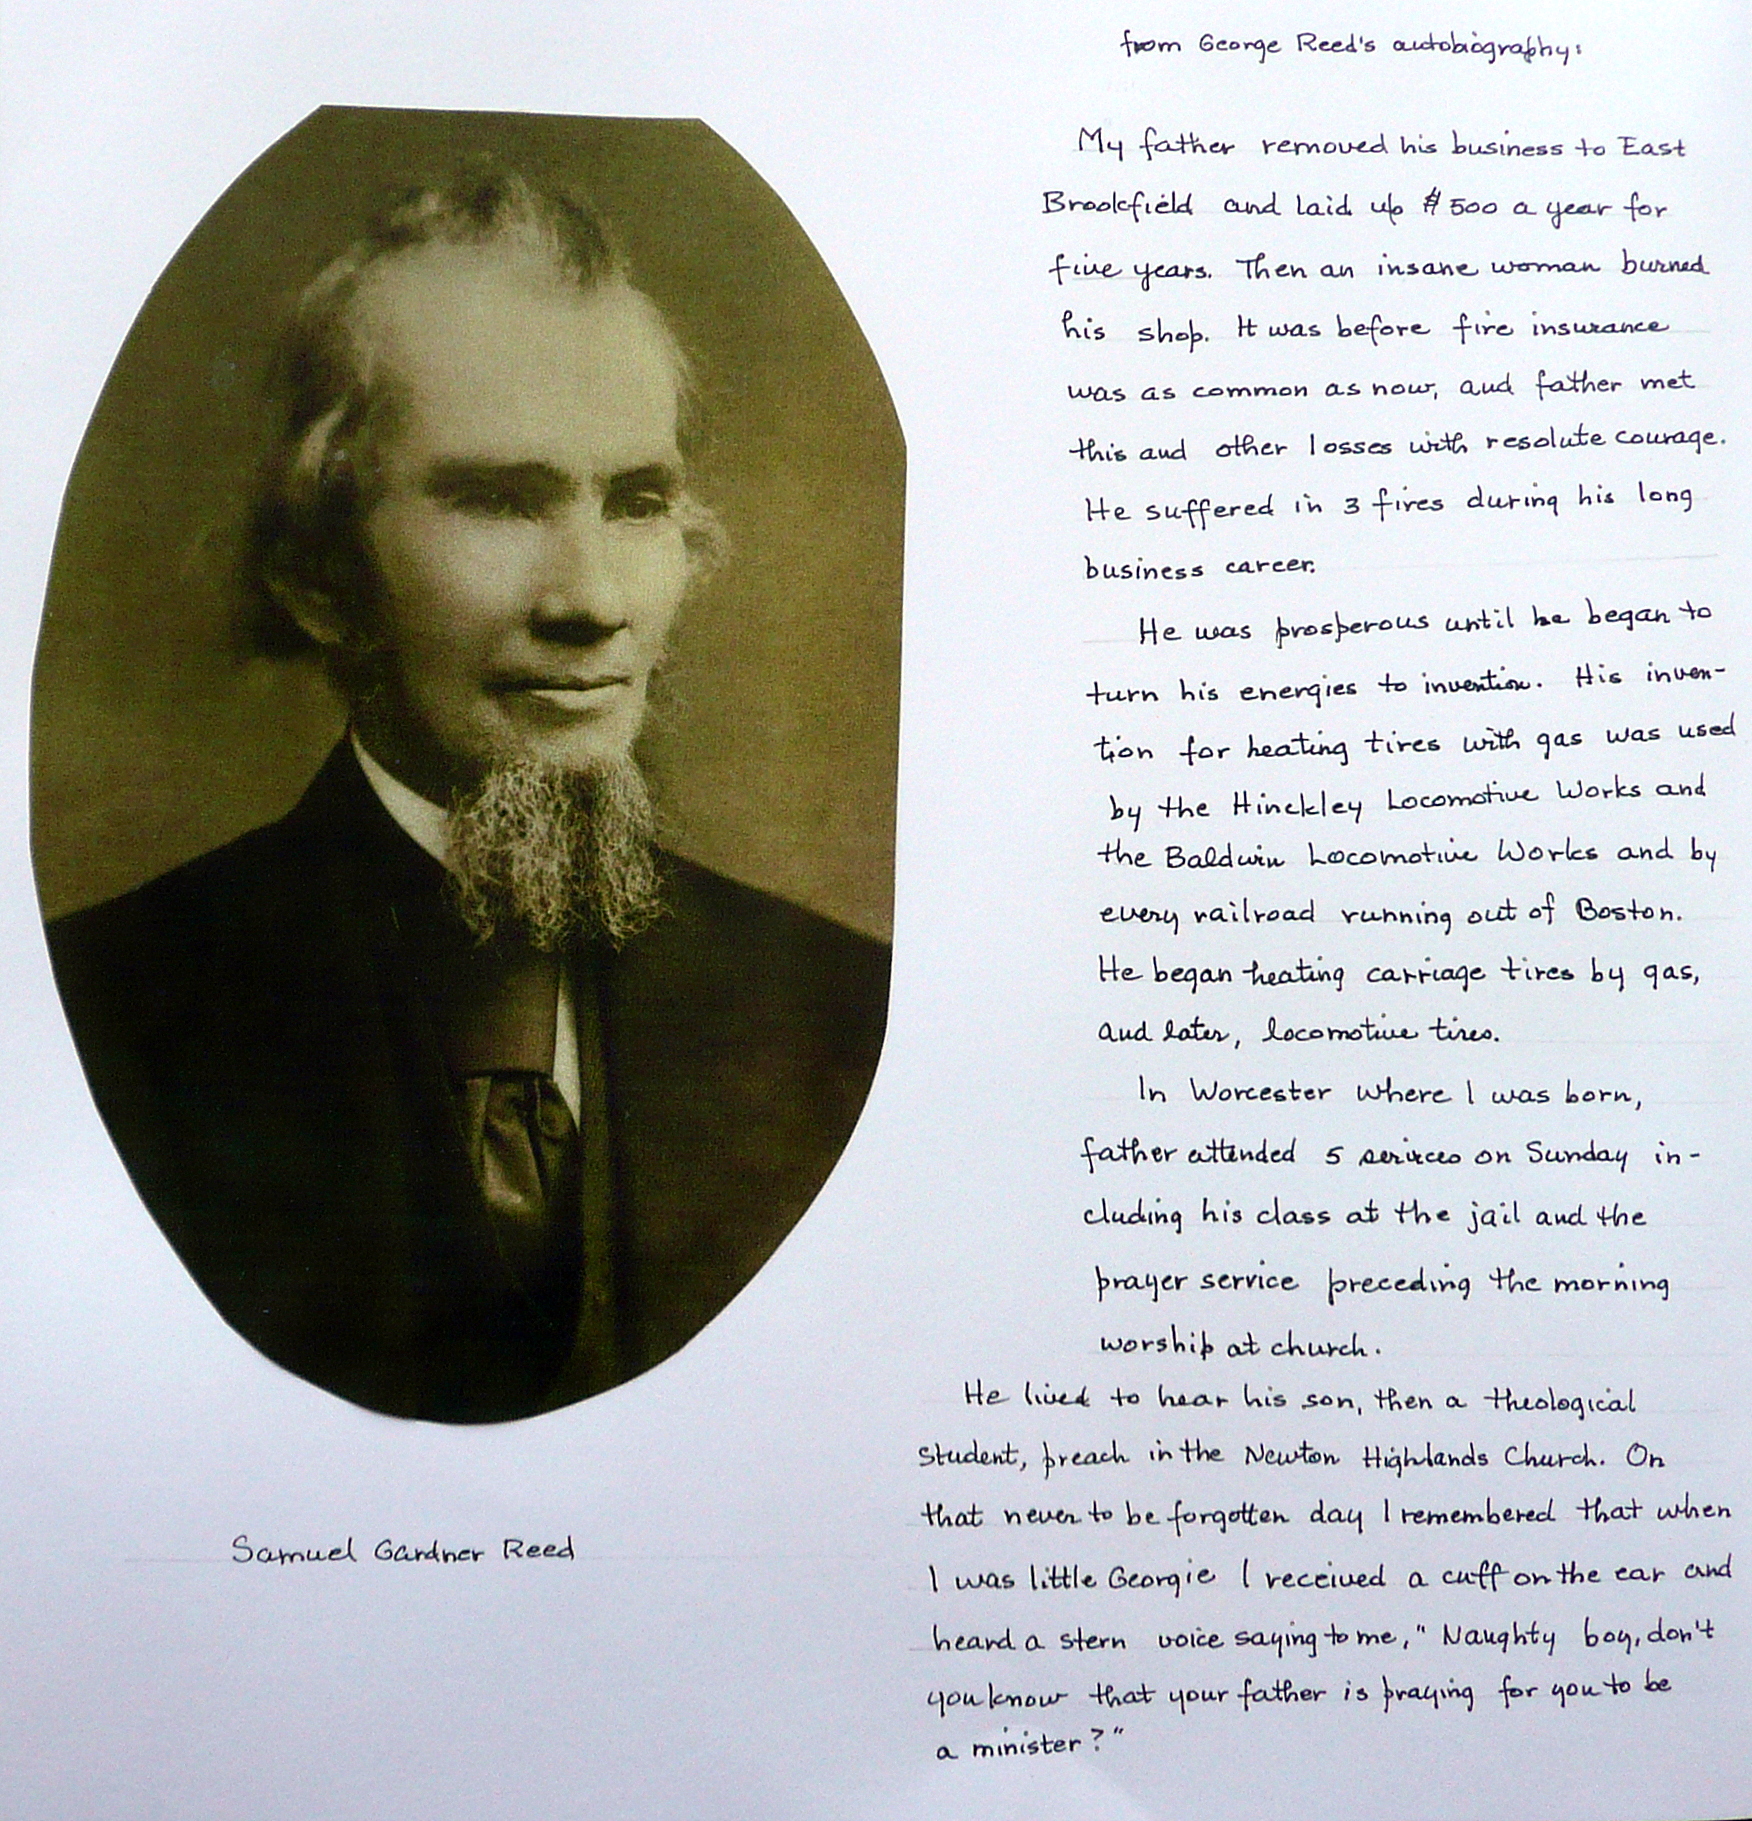 from George Reed's autobiography:
My father removed his business to East
Brookfield and laid up $500 a year for
five years. Then an insane woman burned
his shop. It was before fire insurance
was as common as now, and father met
this and other losses with resolute courage.
He suffered in 3 fires during his long
business career.
He was prosperous until he began to
turn his energies to invention. His inven-
tion for heating tires with gas was used
by the Hinckley Locomotive Works and
the Baldwin Locomotive Works and by
every railroad running out of Boston.
He began heating carriage tires by gas,
and later, locomotive tires.
In Worcester where I was born,
father attended 5 services on Sunday in-
cluding his class at the jail and the
prayer service preceding the morning
worship at church.
He lived to hear his son, then a theological
student, preach in the Newton Highlands Church. On
that never to be forgotten day I remembered that when
I was little Georgie I received a cuff on the ear and
heard a stern voice saying to me, "Naughty boy, don't
you know that your father is praying for you to be
a minister?"
Samuel Gardner Reed